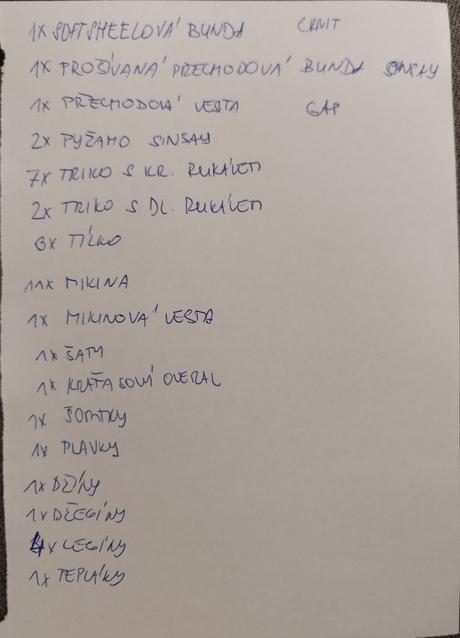 1X SOFTSHEELOVÁ BUNDA CRIVIT
1X PROŠÍVANÁ PŘECHODOVÁ BUNDA SINSAY
1X PŘECHODOVÁ VESTA GAP
2X PYŽAMO SINSAY
7X TRIKO S KR. RUKÁVEM
2X TRIKO S DL. RUKÁVEM
3X TÍLKO
11X MIKINA
1X MIKINOVÁ VESTA
1X ŠATY
1X KRAŤASOVÝ OVERAL
1X ŠORTKY
1X PLAVKY
1X DŽÍNY
1X DŽEGÍNY
4X LEGÍNY
1X TEPLÁKY